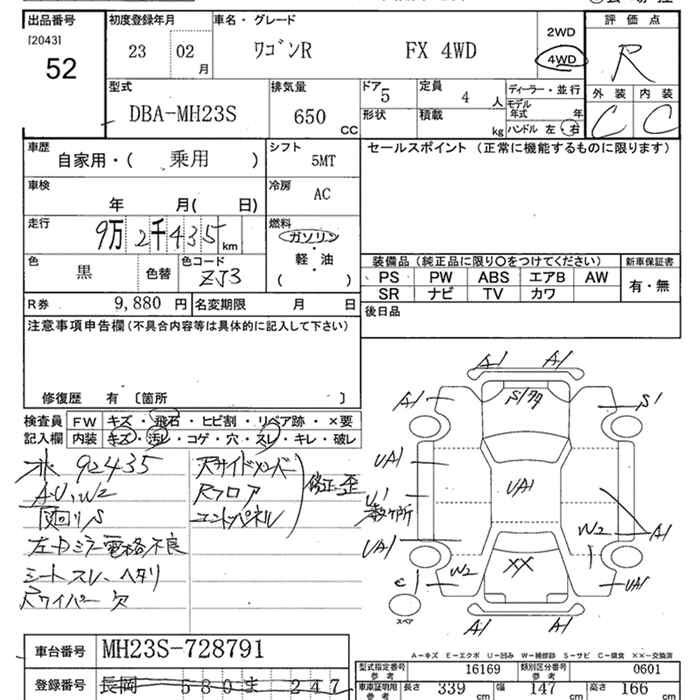 出品番号 初度登録年月 車名・グレード 評価点
[2043] 52
23 02 月 ワゴンR FX 4WD 2WD 4WD R
型式 排気量 ドア 5 定員 4 人 ディーラー・並行 外装 内装
DBA-MH23S 650 CC 形状 積載 kg モデル年式 年 ハンドル 左・右 C C
車歴 自家用・( 乗用 ) シフト 5MT セールスポイント (正常に機能するものに限ります)
車検 年 月( 日) 冷房 AC
走行 9万 2千435 km 燃料 ガソリン・軽油・( )
色 黒 色替 色コード ZJ3
装備品 (純正品に限り〇をつけてください) 新車保証書
PS PW ABS エアB AW 有・無
SR ナビ TV カワ
R券 9,880 円 名変期限 月 日 後日品
注意事項申告欄 (不具合内容等は具体的に記入して下さい)
修復歴 有 〔箇所 〕
検査員記入欄 FW キズ・飛石・ヒビ割・リペア跡・×要
内装 キズ・汚レ・コゲ・穴・スレ・キレ・破レ
92435
A・U、W2
左ドアミラー電格不良
シートスレ、ヘタリ
Rワイパー欠
Rサイドメンバー
Rフロア
エンドパネル
修正・歪
A1 A1
A1 S1
UA1 UA1
U1
UA1 W2 A1
W2 XX UA1
C1
スペア
A1 A1
A-キズ E-エクボ U-凹み W-補修跡 S-サビ C-腐食 ××-交換済
車台番号 MH23S-728791
登録番号 長岡 580 ま 247
型式指定番号 参考 16169 類別区分番号 参考 0601
車庫証明用 参考 長さ 339 cm 幅 147 cm 高さ 166 cm